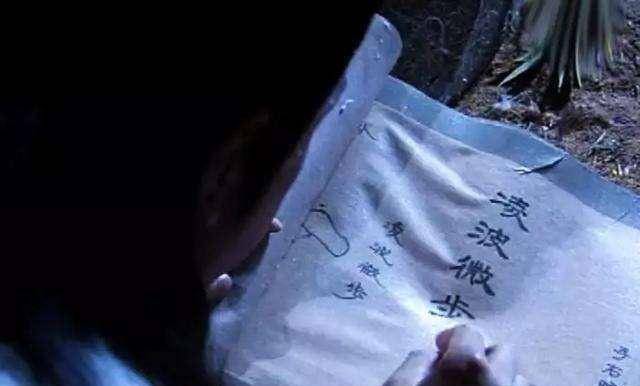 凌波微步
凌波微步